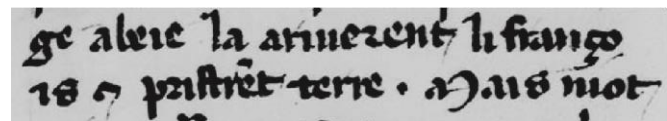 ge abeie la ariuerent li franço
is ⁊ pristrēt terre . Mais mōt